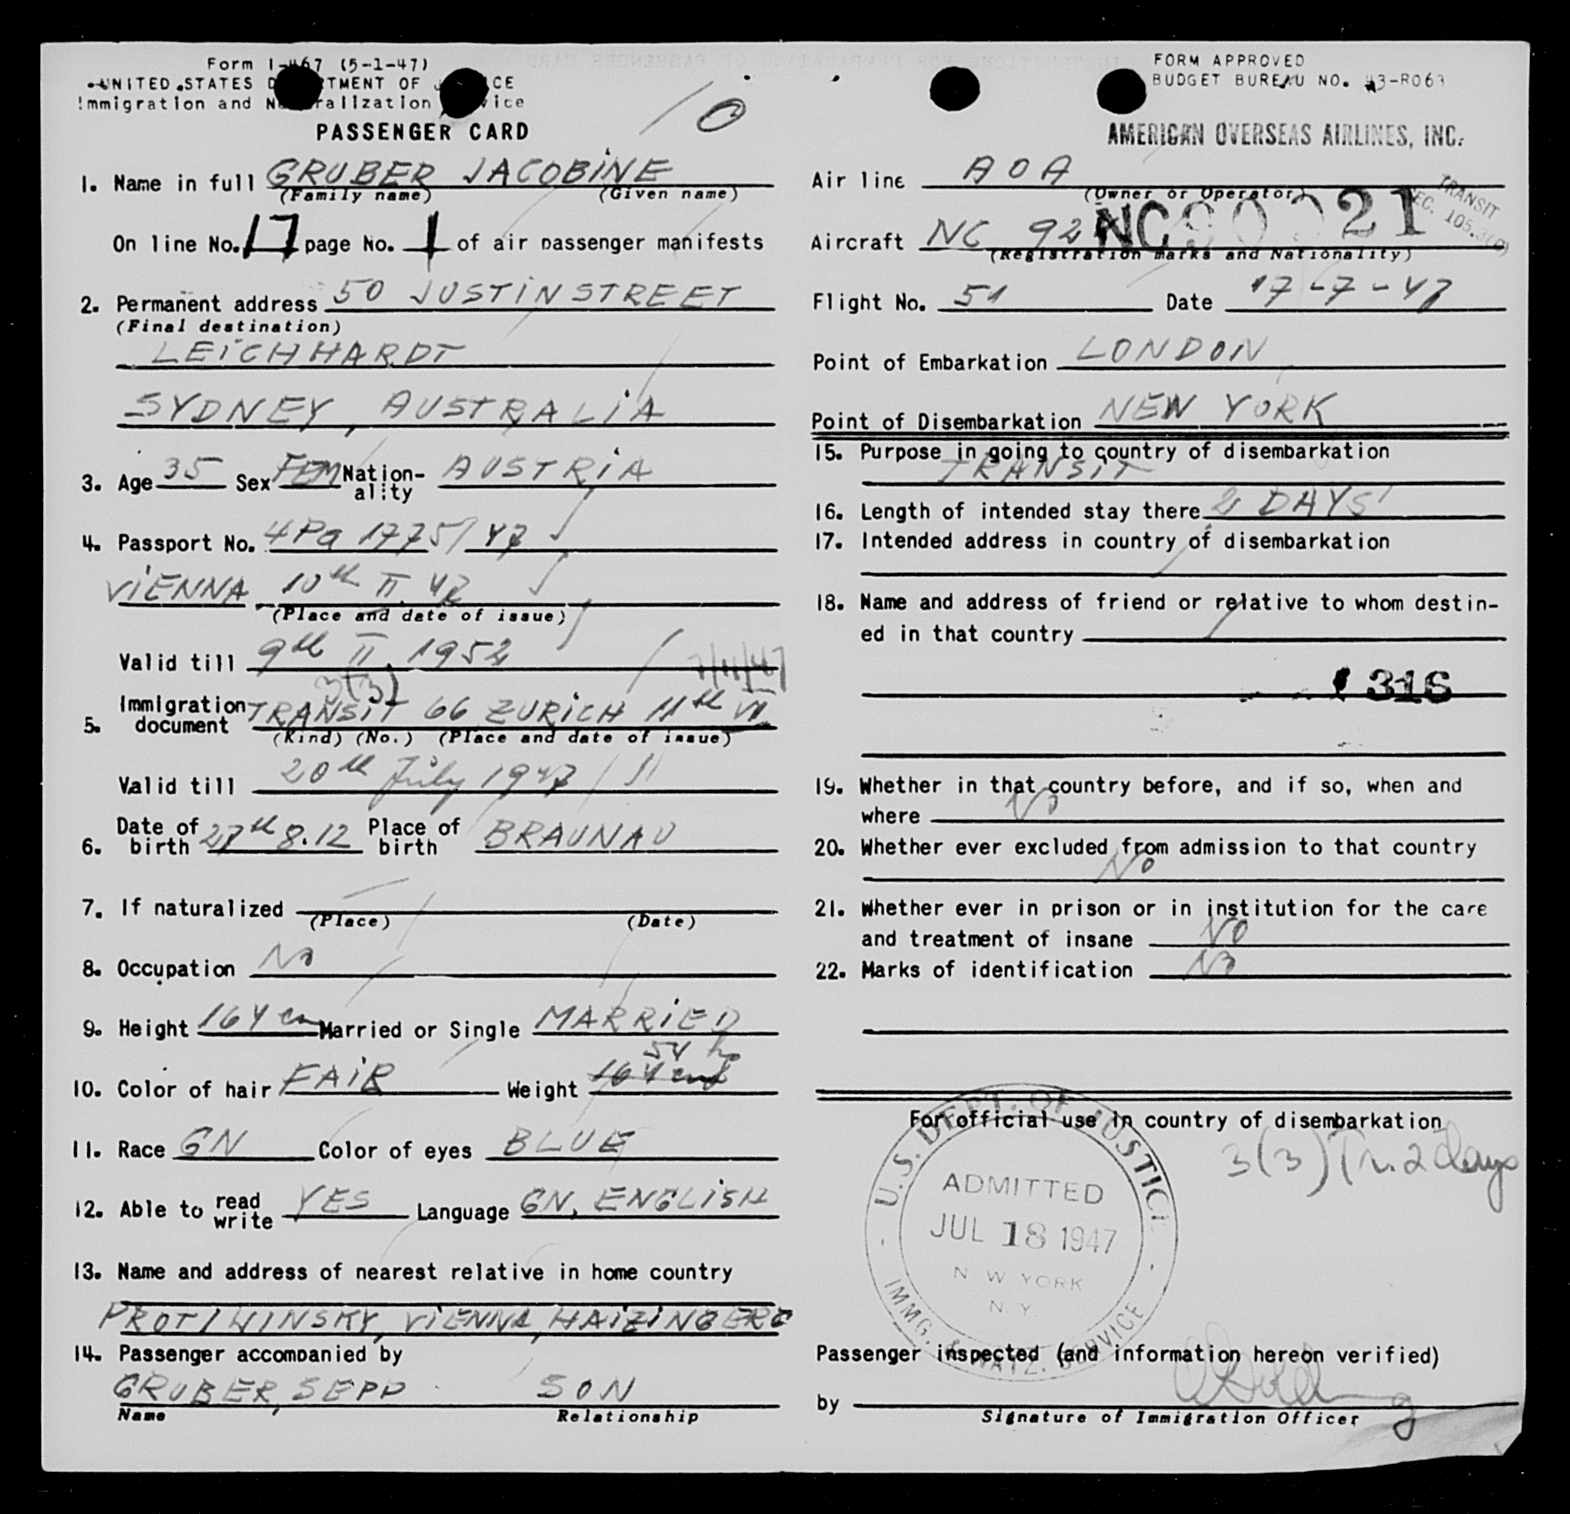 Form I-467 (5-1-47)
UNITED STATES D TMENT OF J CE
Immigration and N ralization vice
PASSENGER CARD
10
1. Name in full GRUBER JACOBINE
(Family name) (Given name)
On line No. 17 page No. 1 of air passenger manifests
2. Permanent address 50 JUSTIN STREET
(Final destination)
LEICHHARDT
SYDNEY, AUSTRALIA
3. Age 35 Sex FEM Nationality AUSTRIA
4. Passport No. 4Pa 1775/47
VIENNA 10th II 47
(Place and date of issue)
Valid till 9th II. 1952
7/11/47
3(3)
5. Immigration document TRANSIT 66 ZURICH 11th VI
(Kind) (No.) (Place and date of issue)
Valid till 20th July 1947
6. Date of birth 27th 8.12 Place of birth BRAUNAU
7. If naturalized
(Place) (Date)
8. Occupation No
9. Height 164 cm Married or Single MARRIED
54
10. Color of hair FAIR Weight 164 cm
11. Race GN Color of eyes BLUE
12. Able to read write YES Language GN, ENGLISH
13. Name and address of nearest relative in home country
PROTIWINSKY, VIENNA, HAIZINGERG
14. Passenger accompanied by
GRUBER, SEPP SON
Name Relationship
FORM APPROVED
BUDGET BUREAU NO. 43-R063
AMERICAN OVERSEAS AIRLINES, INC.
Air line AOA
(Owner or Operator)
TRANSIT
SEC. 105.3(a)
Aircraft NC 92 NC90921
(Registration marks and Nationality)
Flight No. 51 Date 17-7-47
Point of Embarkation LONDON
Point of Disembarkation NEW YORK
15. Purpose in going to country of disembarkation
TRANSIT
16. Length of intended stay there 2 DAYS
17. Intended address in country of disembarkation
18. Name and address of friend or relative to whom destin-
ed in that country
1316
19. Whether in that country before, and if so, when and
where No
20. Whether ever excluded from admission to that country
No
21. Whether ever in prison or in institution for the care
and treatment of insane NO
22. Marks of identification No
For official use in country of disembarkation
3(3) Tr. 2 days
U.S. DEPT. OF JUSTICE
ADMITTED
JUL 18 1947
N W YORK
N.Y.
IMMG. & NATZ. SERVICE
Passenger inspected (and information hereon verified)
by
Signature of Immigration Officer